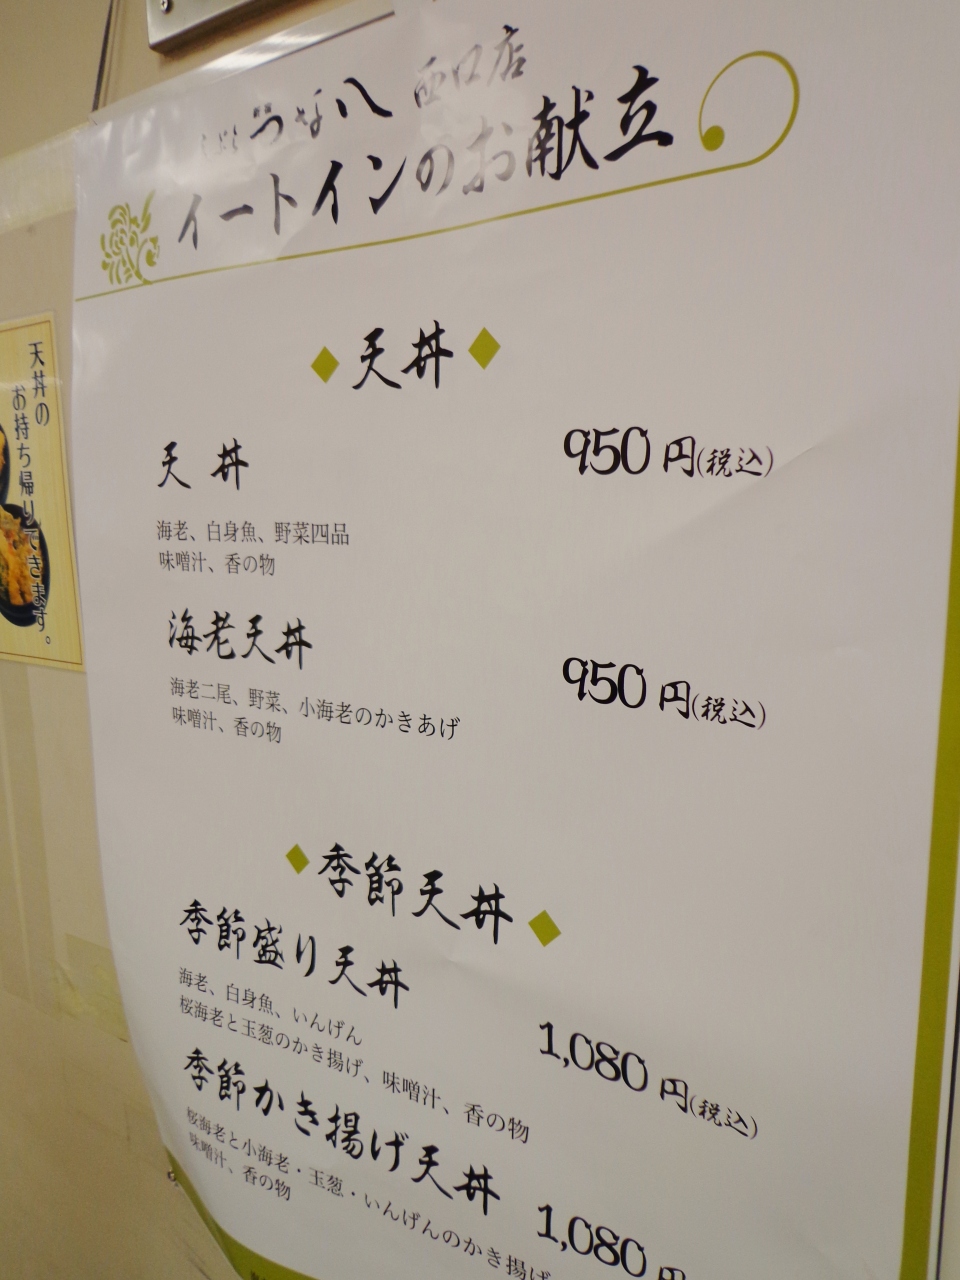 新宿 つな八 西口店
イートインのお献立
天丼
天丼 950円(税込)
海老、白身魚、野菜四品
味噌汁、香の物
海老天丼 950円(税込)
海老二尾、野菜、小海老のかきあげ
味噌汁、香の物
季節天丼
季節盛り天丼
海老、白身魚、いんげん
桜海老と玉葱のかき揚げ、味噌汁、香の物
1,080円(税込)
季節かき揚げ天丼
桜海老と小海老・玉葱・いんげんのかき揚げ
味噌汁、香の物
1,080円
天丼の
お持ち帰りできます。